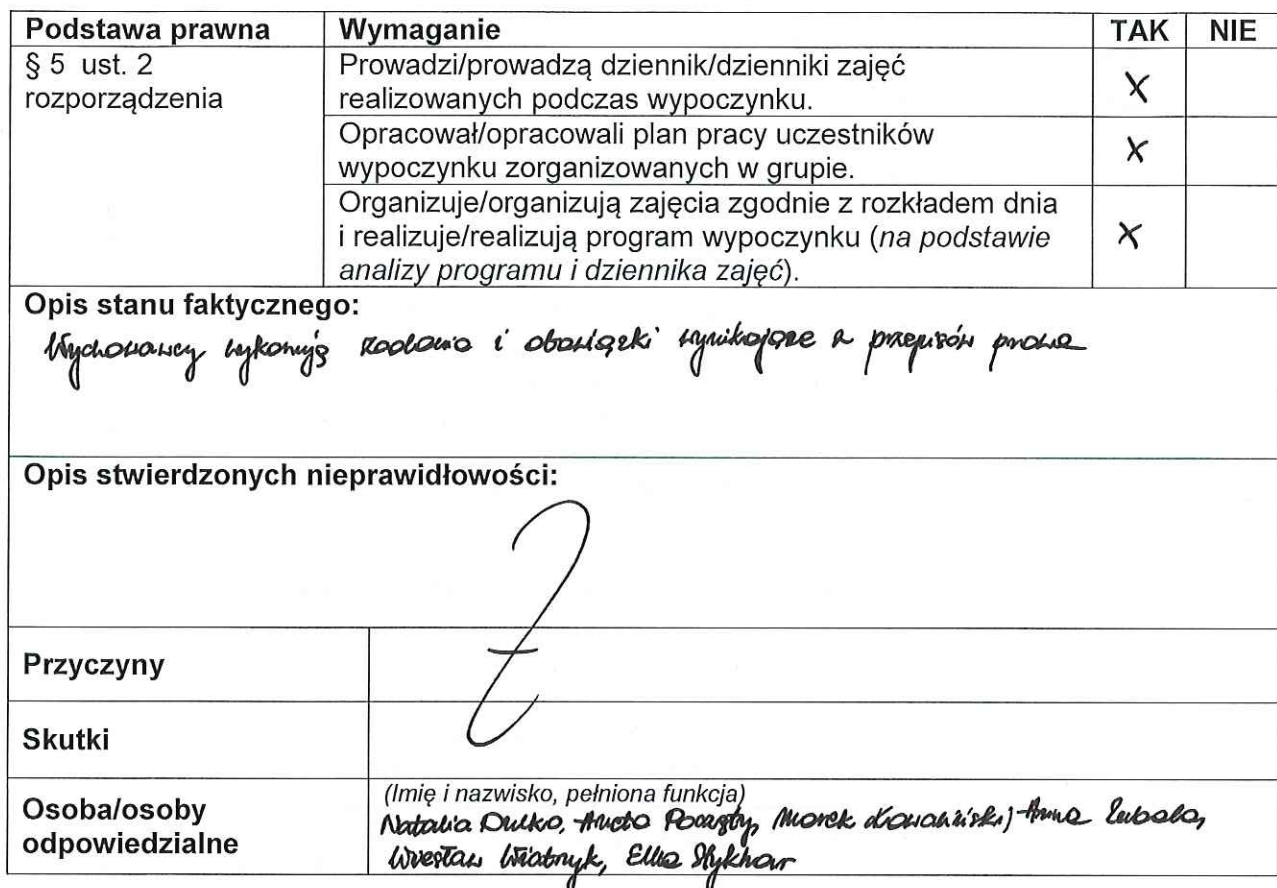 Podstawa prawna Wymaganie TAK NIE
§ 5 ust. 2
rozporządzenia
Prowadzi/prowadzą dziennik/dzienniki zajęć
realizowanych podczas wypoczynku. X
Opracował/opracowali plan pracy uczestników
wypoczynku zorganizowanych w grupie. X
Organizuje/organizują zajęcia zgodnie z rozkładem dnia
i realizuje/realizują program wypoczynku (na podstawie
analizy programu i dziennika zajęć). X
Opis stanu faktycznego:
Wychowawcy wykonują zadania i obowiązki wynikające z przepisów prawa
Opis stwierdzonych nieprawidłowości:
Przyczyny
Skutki
Osoba/osoby
odpowiedzialne
(Imię i nazwisko, pełniona funkcja)
Natalia Dulko, Marek Anna
Wiesław Wiatryk,